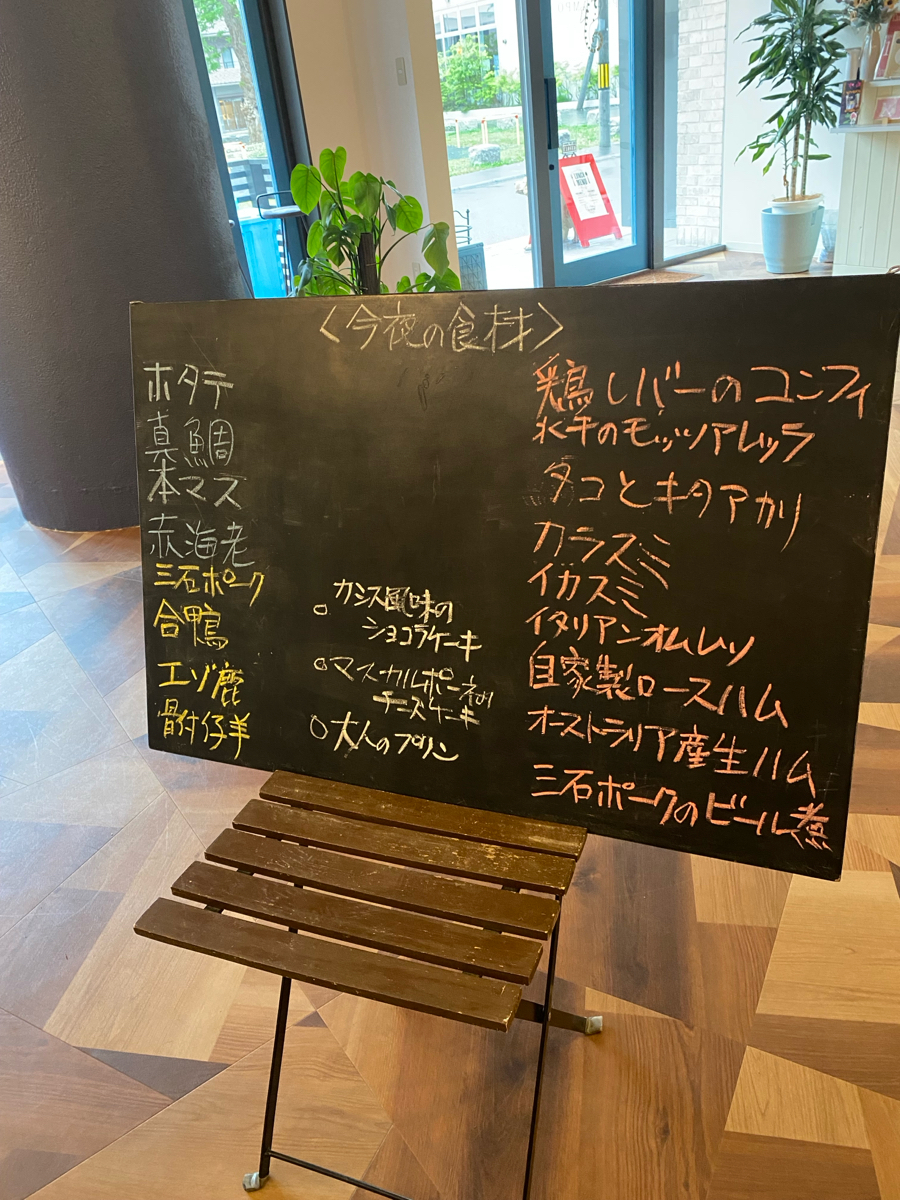 〈今夜の食材〉
ホタテ
真鯛
本マス
赤海老
三石ポーク
合鴨
エゾ鹿
骨付仔羊
○カシス風味の
ショコラケーキ
○マスカルポーネの
チーズケーキ
○大人のプリン
鶏レバーのコンフィ
水牛のモッツァレッラ
タコとキタアカリ
カラスミ
イカスミ
イタリアンオムレツ
自家製ロースハム
オーストラリア産生ハム
三石ポークのビール煮
LUNCH
MENU